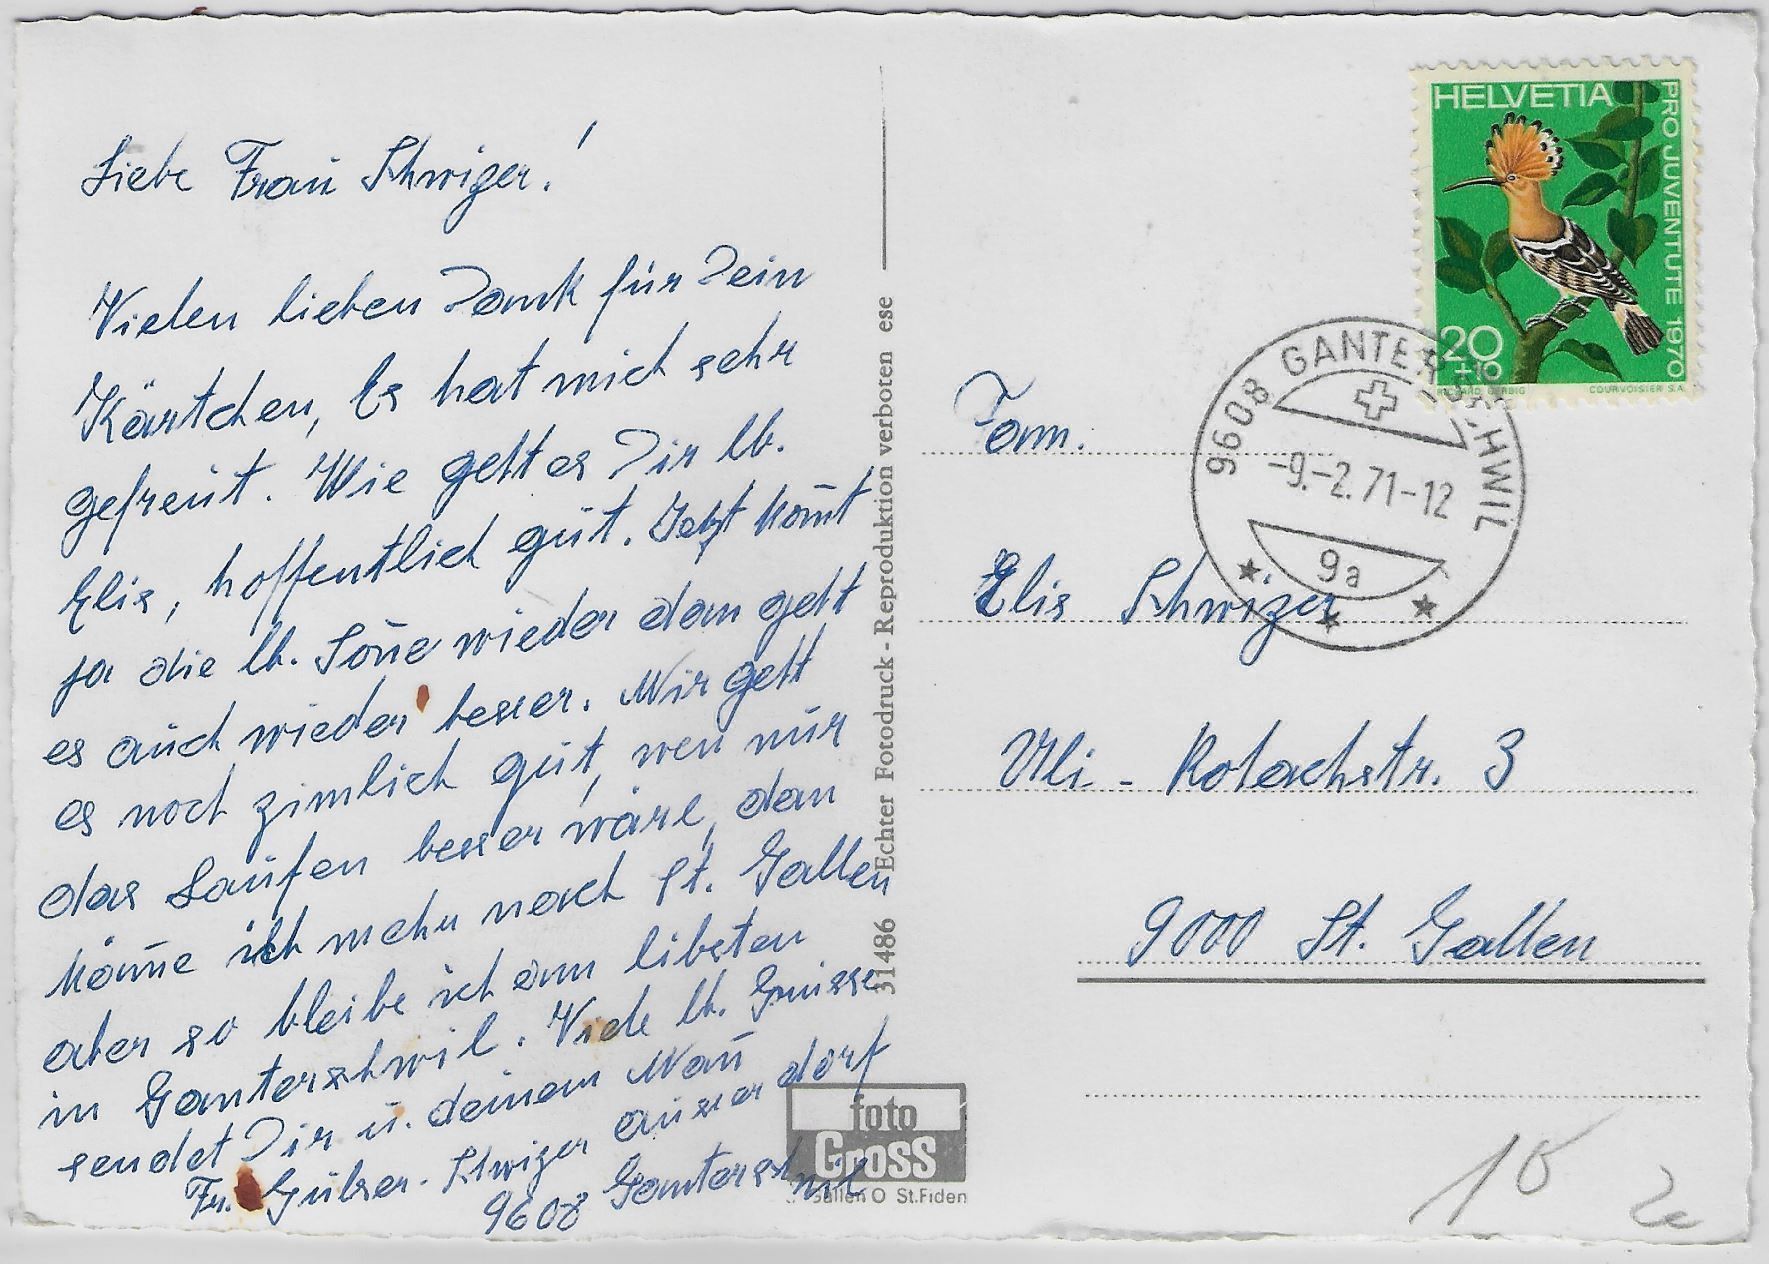 Liebe Frau Schwizer!
Vielen lieben Dank für Dein
Kärtchen, Es hat mich sehr
gefreut. Wie geht es Dir lb.
Elis, hoffentlich gut. Jetzt kom̄t
ja die lb. Son̄e wieder dan geht
es auch wieder besser. Mir geht
es noch zimlich gut, wen nur
das Laufen besser wäre, dan
kön̄e ich mehr nach St. Gallen
aber so bleibe ich am libsten
in Ganterschwil. Viele lb. Grüsse
sendet Dir u. deinem Man̄
Fr. Schwizer ausser dorf
9608 Ganterschwil
31486 - Echter Fotodruck - Reproduktion verboten ese
foto
Gross
St. Gallen O St.Fiden
HELVETIA
PRO JUVENTUTE 1970
20
+10
RICHARD GERBIG COURVOISIER S.A.
9608 GANTERSCHWIL
-9.-2.71-12
9a
Fam.
Elis Schwizer
Uli - Rotachstr. 3
9000 St. Gallen